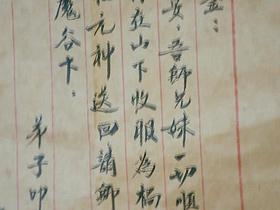 金：
安：吾師兄妹一切順
在山下收服為禍
元神送回請師
魔谷下：
弟子叩